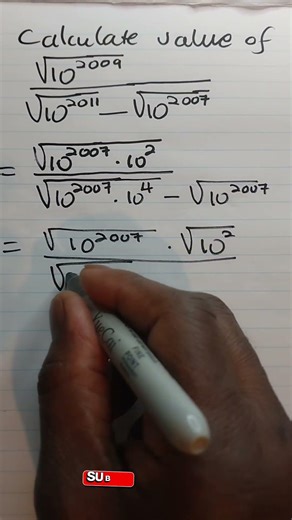 Calculate value of
√10^2009
√10^2011 — √10^2007
= √10^2007 · 10^2
√10^2007 · 10^4 — √10^2007
= √10^2007 · √10^2
√
SUB